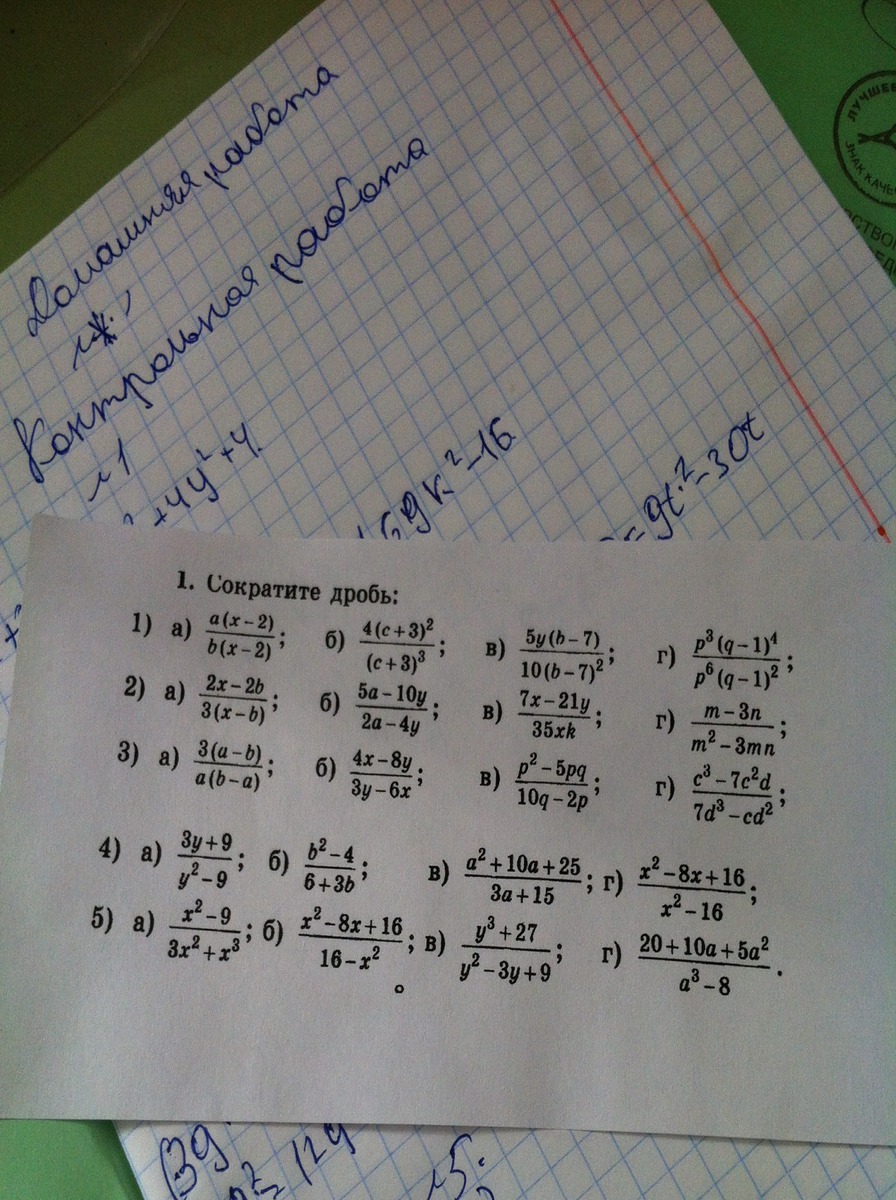 Домашняя работа
Контрольная работа
№1
²+4y²+4
69k²-16
=9t²-30t
1. Сократите дробь:
1) а) a(x-2)/b(x-2); б) 4(c+3)²/(c+3)³; в) 5y(b-7)/10(b-7)²; г) p³(q-1)⁴/p⁶(q-1)²;
2) а) 2x-2b/3(x-b); б) 5a-10y/2a-4y; в) 7x-21y/35xk; г) m-3n/m²-3mn;
3) а) 3(a-b)/a(b-a); б) 4x-8y/3y-6x; в) p²-5pq/10q-2p; г) c³-7c²d/7d³-cd²;
4) а) 3y+9/y²-9; б) b²-4/6+3b; в) a²+10a+25/3a+15; г) x²-8x+16/x²-16;
5) а) x²-9/3x²+x³; б) x²-8x+16/16-x²; в) y³+27/y²-3y+9; г) 20+10a+5a²/a³-8.
ЗНАК КАЧЕ